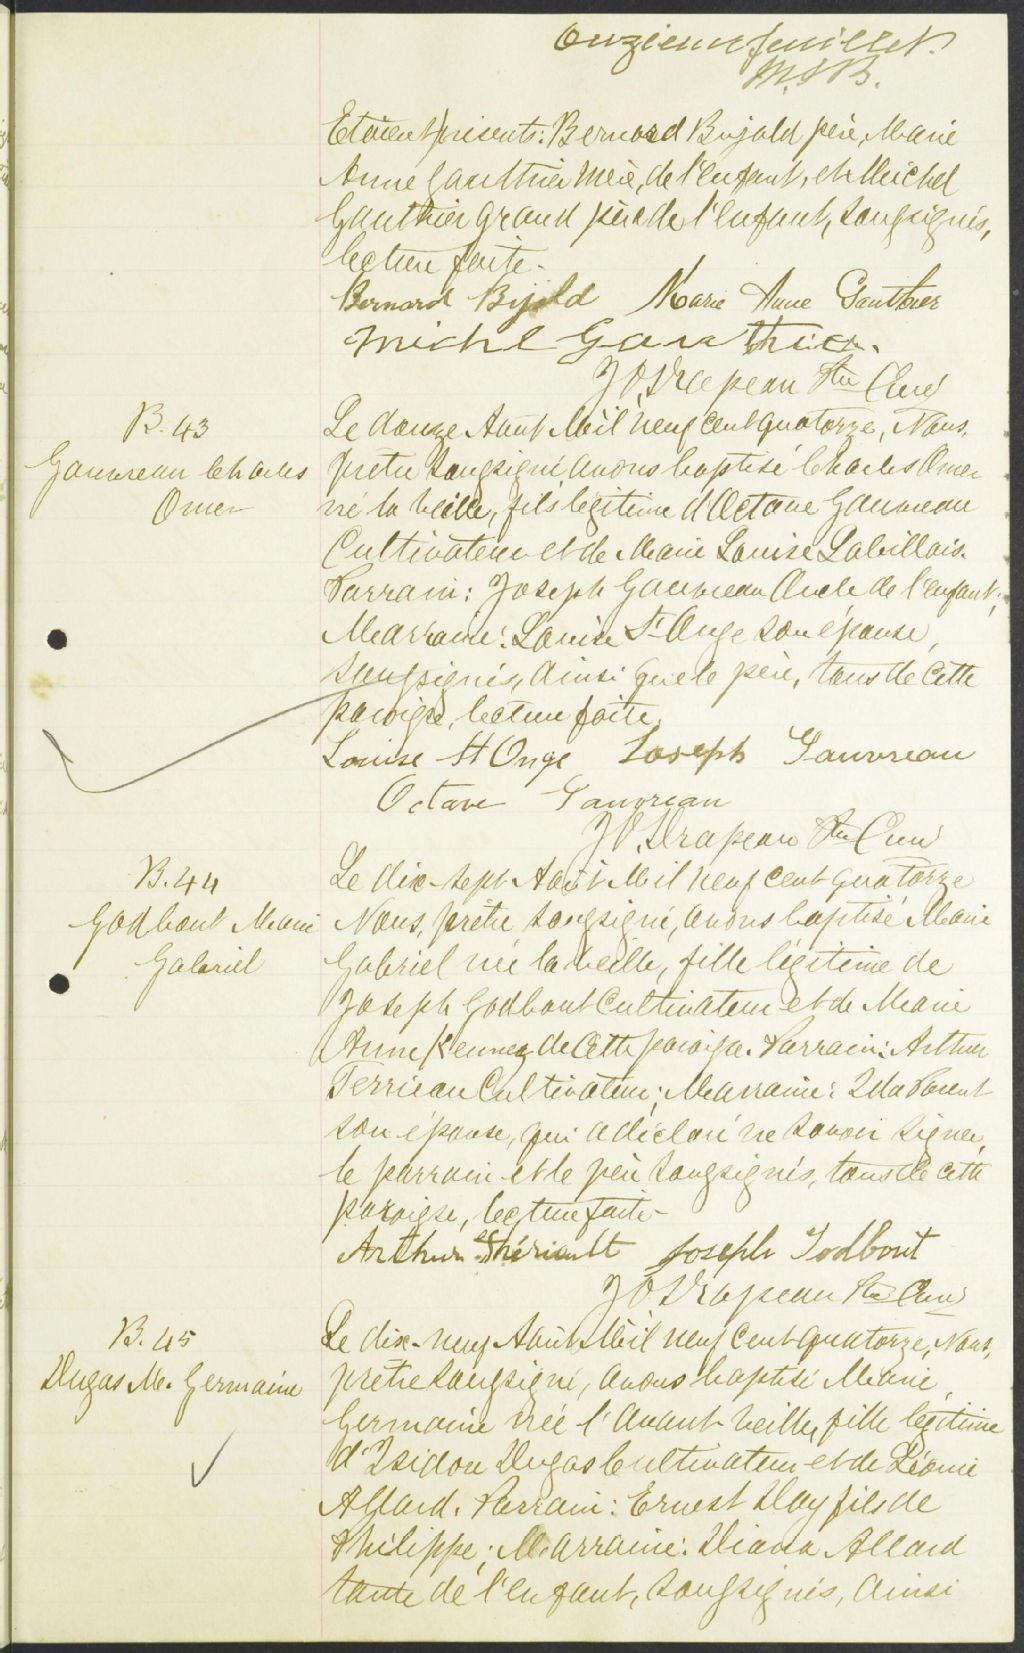 Onzieme feuillet.
M.S.B.
Etaient présents: Bernard Bujold père, Marie
Anne Gauthier mère, de l'enfant, et Michel
Gauthier grand père de l'enfant, soussignés,
lecture faite.
Bernard Bujold Marie Anne Gauthier
Michel Gauthier.
J O Drapeau Ptre Curé
B. 43
Gauvreau Charles
Omer
Le douze Août Mil neuf cent quatorze, Nous,
prêtre soussigné, avons baptisé Charles Omer
né la veille, fils légitime d'Octave Gauvreau
Cultivateur et de Marie Louise Labillois.
Parrain: Joseph Gauvreau Oncle de l'enfant,
Marraine: Louise St Ange son épouse,
soussignés, ainsi que le père, tous de cette
paroisse, lecture faite,
Louise St Onge Joseph Gauvreau
Octave Gauvreau
J O. Drapeau Ptre Curé
B. 44
Godbout Marie
Gabriel
Le dix-sept Août Mil neuf cent quatorze
Nous, prêtre soussigné, avons baptisé Marie
Gabriel née la veille, fille légitime de
Joseph Godbout Cultivateur et de Marie
Anne Kenney de cette paroisse. Parrain: Arthur
Terrieau Cultivateur; Marraine: Ida Parent
son épouse, qui a déclaré ne savoir signer,
le parrain et le père soussignés, tous de cette
paroisse, lecture faite-
Arthur Thériault Joseph Godbout
J O. Drapeau Ptre Curé
B. 45
Dugas M. Germaine
Le dix-neuf Août Mil neuf cent quatorze, Nous,
prêtre soussigné, avons baptisé Marie,
Germaine née l'avant veille, fille légitime
d'Isidore Dugas Cultivateur et de Léonie
Allard. Parrain: Ernest Day fils de
Philippe; Marraine: Diana Allard
tante de l'enfant, soussignés, ainsi